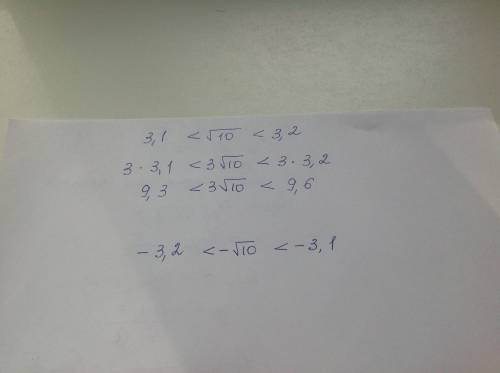 3,1 < √10 < 3,2
3 · 3,1 < 3√10 < 3 · 3,2
9,3 < 3√10 < 9,6
-3,2 < -√10 < -3,1